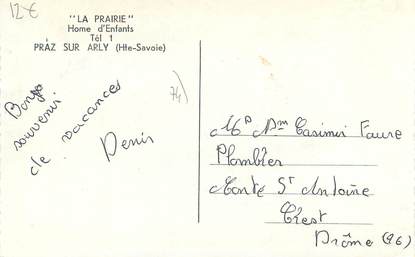 12€
"LA PRAIRIE"
Home d'Enfants
Tél 1
PRAZ SUR ARLY (Hte-Savoie)
74)
Bons
souvenir
de vacances
Denis
Mr Mme Casimir Faure
Plombier
Monté St Antoine
Crest
Drôme (26)